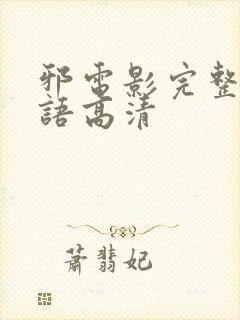 邪電影完整
語高清
蕭翡妃